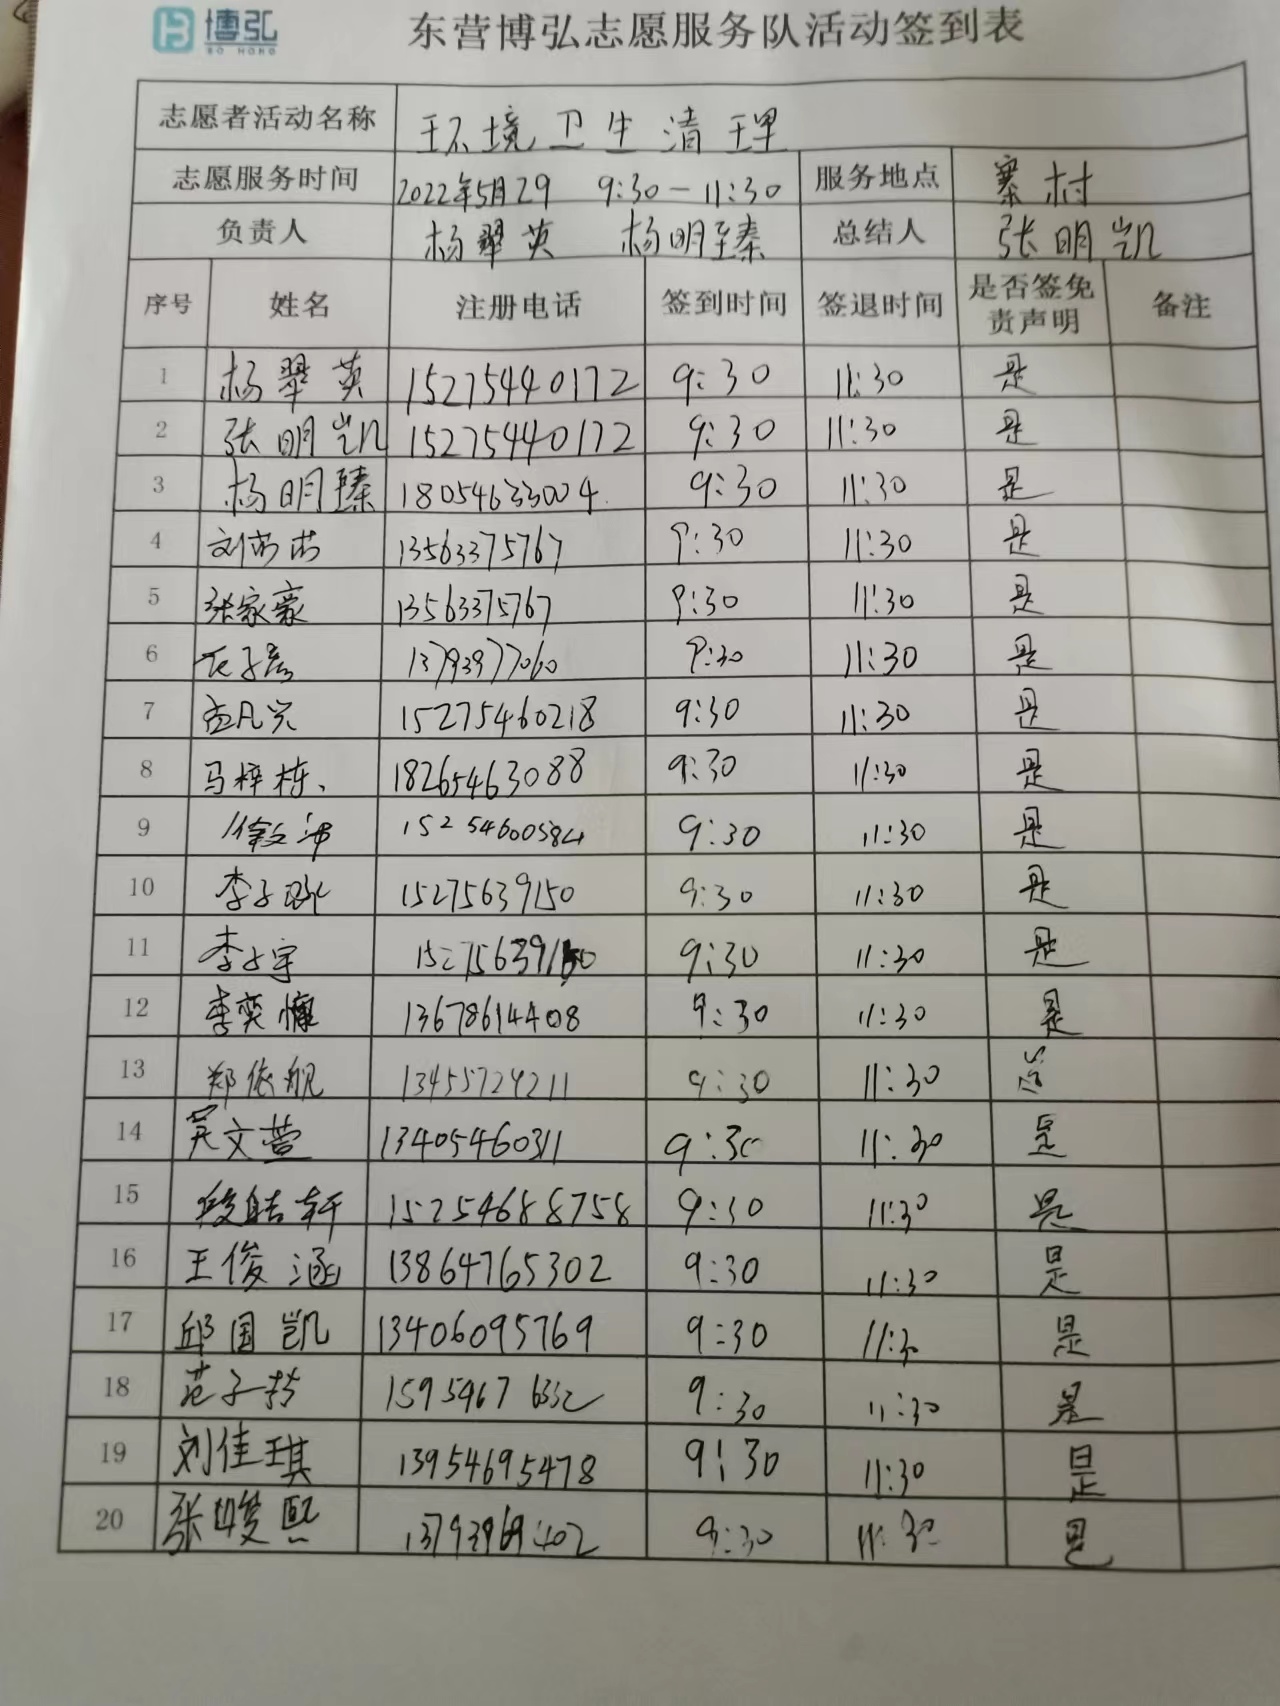 博弘
BO HONG
东营博弘志愿服务队活动签到表
志愿者活动名称 环境卫生清理
志愿服务时间 2022年5月29 9:30-11:30 服务地点 寨村
负责人 杨翠英 杨明臻 总结人 张明凯
序号 姓名 注册电话 签到时间 签退时间 是否签免责声明 备注
1 杨翠英 15275440172 9:30 11:30 是
2 张明凯 15275440172 9:30 11:30 是
3 杨明臻 18054633004 9:30 11:30 是
4 13563375767 9:30 11:30 是
5 张家豪 13563375767 9:30 11:30 是
6 13793977060 9:30 11:30 是
7 孟凡兴 15275460218 9:30 11:30 是
8 马梓栋、 18265463088 9:30 11:30 是
9 15254600584 9:30 11:30 是
10 李子 15275639150 9:30 11:30 是
11 李子宇 15275639150 9:30 11:30 是
12 李奕慷 13678614408 9:30 11:30 是
13 郑依舰 13455724211 9:30 11:30 是
14 吴文萱 13405460311 9:30 11:30 是
15 段皓轩 15254688758 9:30 11:30 是
16 王俊涵 13864765302 9:30 11:30 是
17 邱国凯 13406095769 9:30 11:30 是
18 范子 15954676332 9:30 11:30 是
19 刘佳琪 13954695478 9:30 11:30 是
20 张峻熙 13793969402 9:30 11:30 是